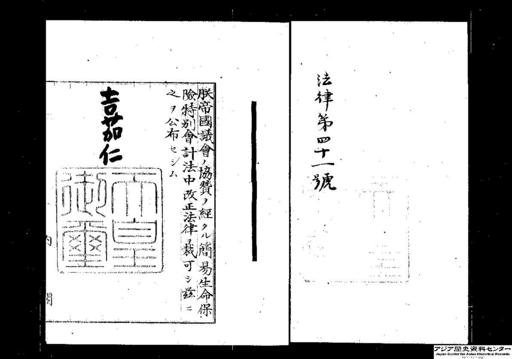 法律第四十一號
朕帝國議會ノ協贊ヲ經タル簡易生命保
險特別會計法中改正法律ヲ裁可シ茲ニ
之ヲ公布セシム
嘉仁
天皇
御璽
内閣
アジア歴史資料センター
Japan Center for Asian Historical Records